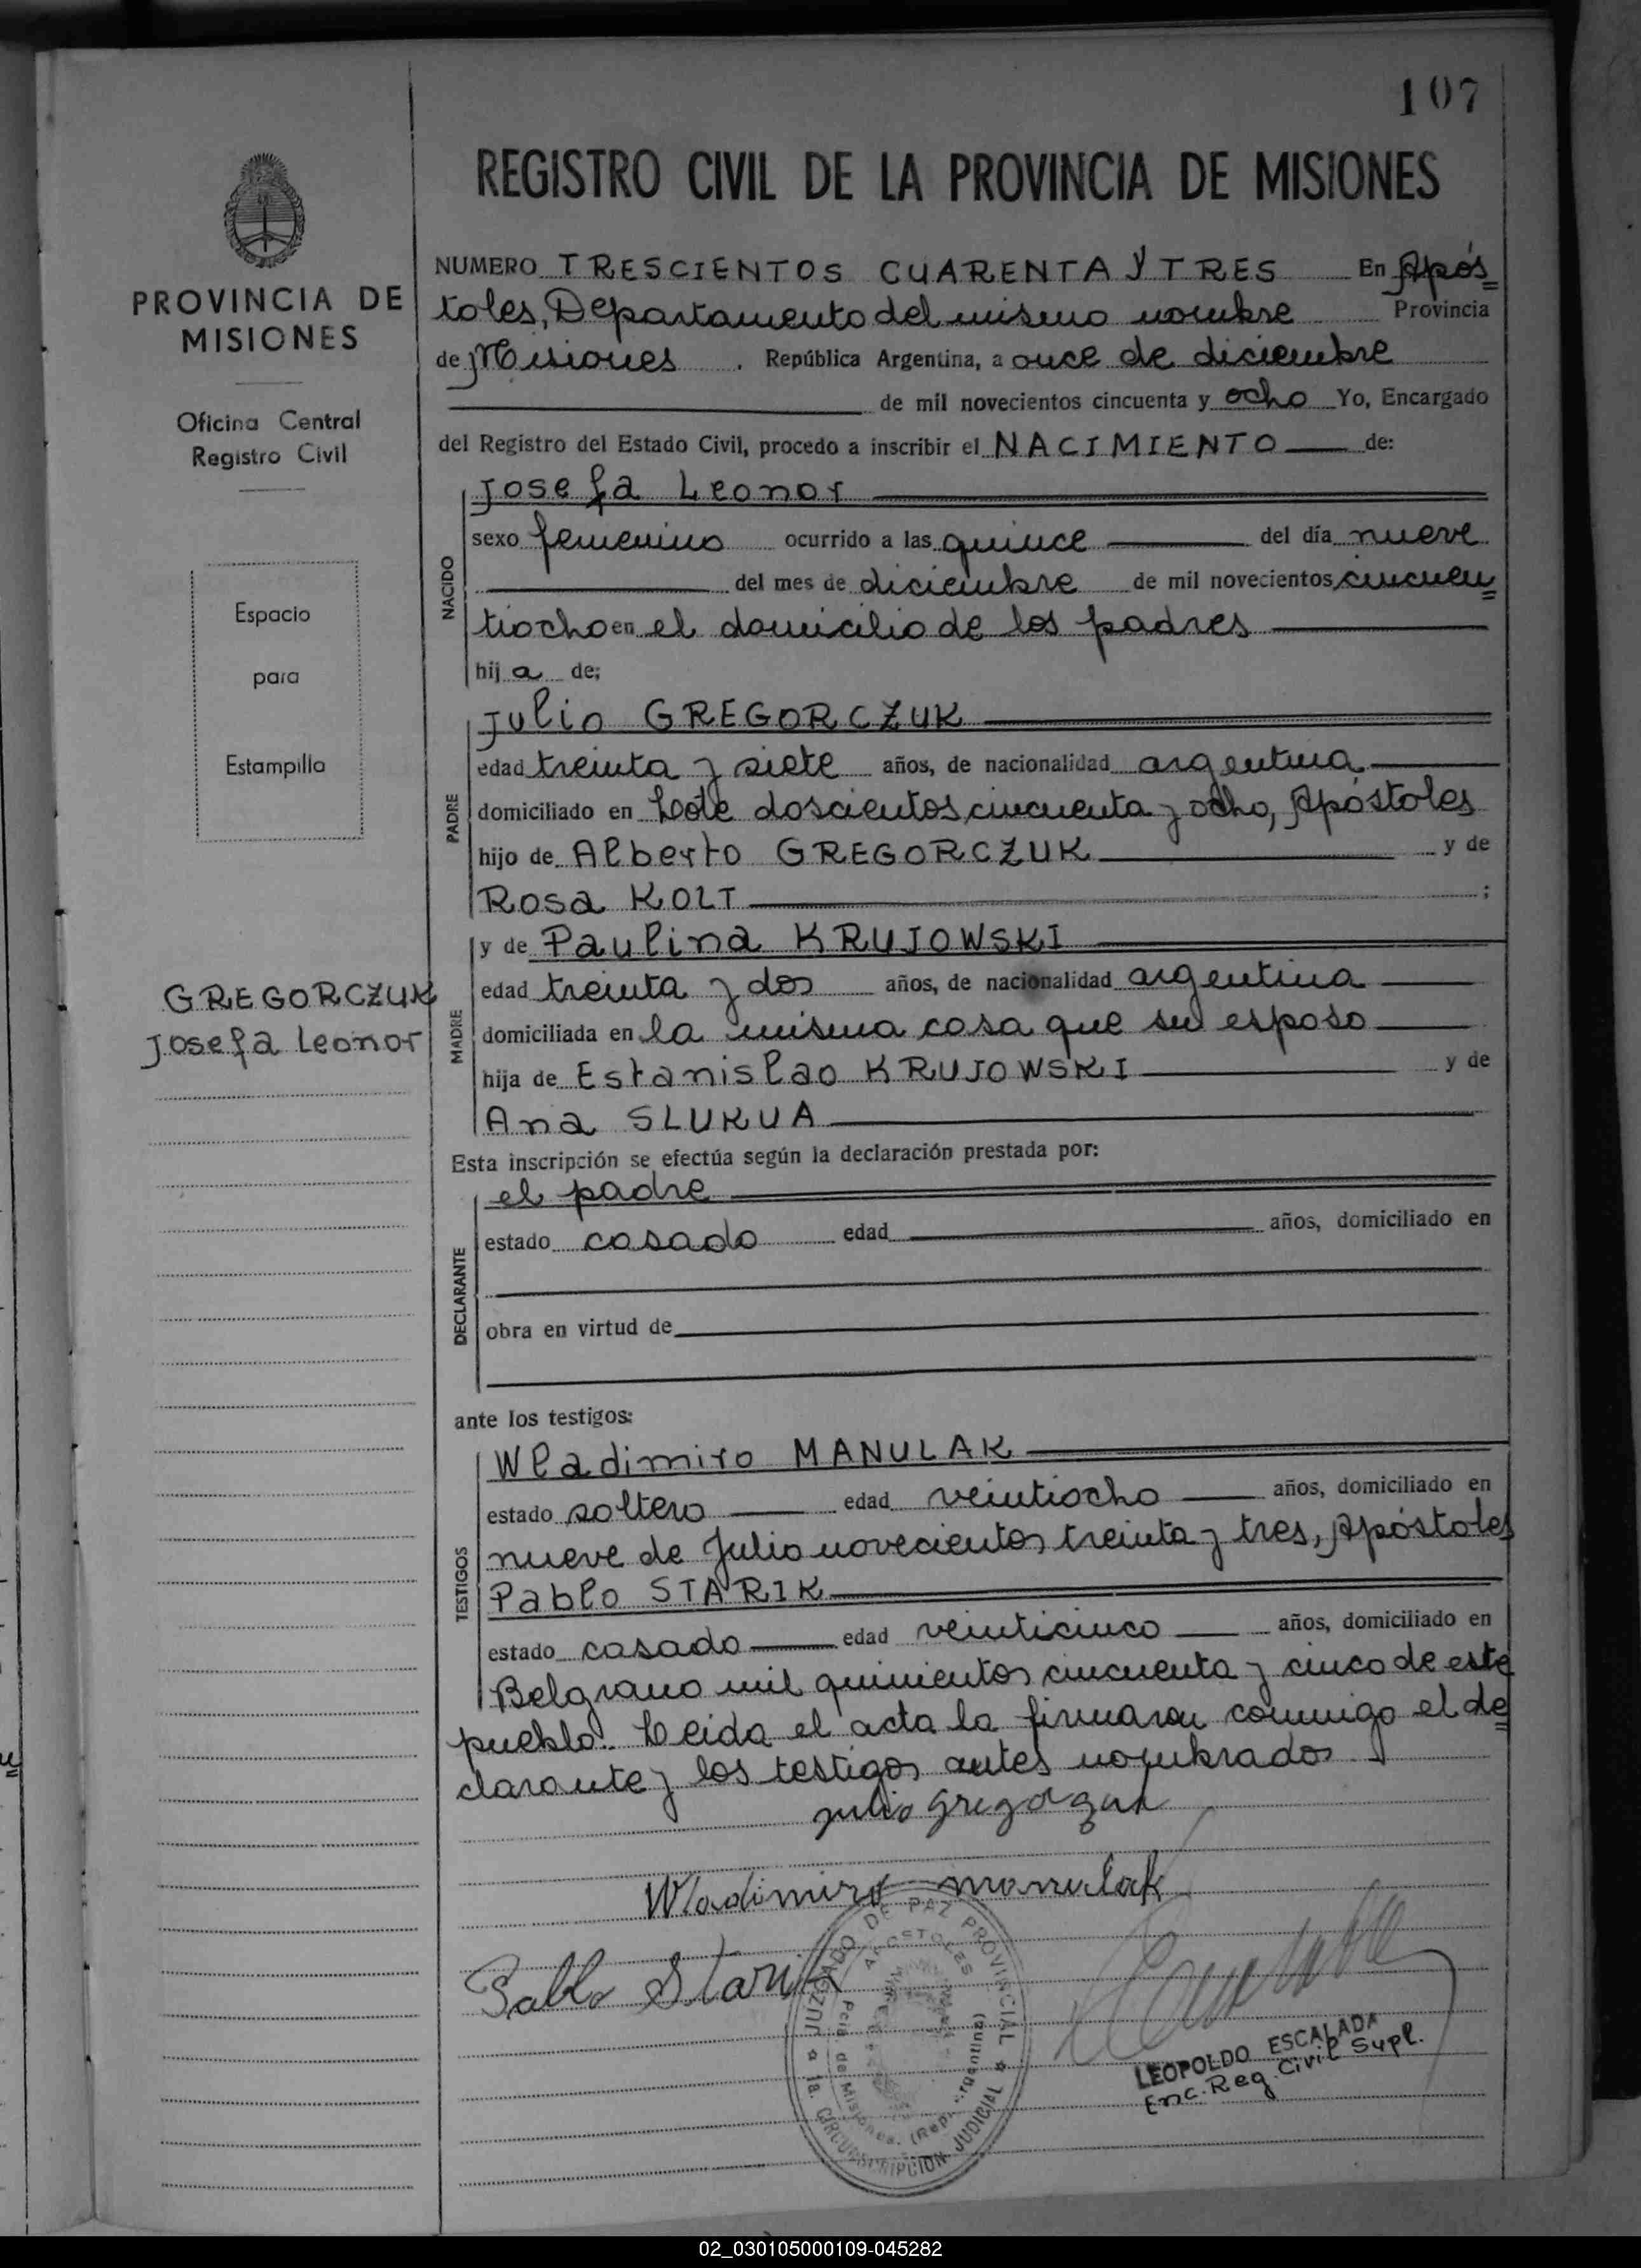 107
REGISTRO CIVIL DE LA PROVINCIA DE MISIONES
PROVINCIA DE
MISIONES
Oficina Central
Registro Civil
Espacio
para
Estampilla
GREGORCZUK
Josefa Leonor
NUMERO TRESCIENTOS CUARENTA Y TRES En Após=
toles, Departamento del mismo nombre Provincia
de Misiones. República Argentina, a once de diciembre
de mil novecientos cincuenta y ocho Yo, Encargado
del Registro del Estado Civil, procedo a inscribir el NACIMIENTO de:
NACIDO
Josefa Leonor
sexo femenino ocurrido a las quince del día nueve
del mes de diciembre de mil novecientos cincuen=
tiocho en el domicilio de los padres
hija de;
PADRE
Julio GREGORCZUK
edad treinta y siete años, de nacionalidad argentina
domiciliado en Lote doscientos cincuenta y ocho, Apóstoles
hijo de Alberto GREGORCZUK y de
Rosa KOLT ;
MADRE
y de Paulina KRUJOWSKI
edad treinta y dos años, de nacionalidad argentina
domiciliada en la misma casa que su esposo
hija de Estanislao KRUJOWSKI y de
Ana SLUKUA
Esta inscripción se efectúa según la declaración prestada por:
DECLARANTE
el padre
estado casado edad años, domiciliado en
obra en virtud de
ante los testigos:
TESTIGOS
Wladimiro MANULAK
estado soltero edad veintiocho años, domiciliado en
nueve de Julio novecientos treinta y tres, Apóstoles
Pablo STARIK
estado casado edad veinticinco años, domiciliado en
Belgrano mil quinientos cincuenta y cinco de este
pueblo. Leida el acta la firmaron conmigo el de=
clarante y los testigos antes nombrados
Julio Gregorzuk
Wladimiro Manulak
Pablo Starik
JUZGADO DE PAZ PROVINCIAL
1a. CIRCUNSCRIPCION JUDICIAL
APOSTOLES
Pcia. de Misiones. (Rep. Argentina)
LEOPOLDO ESCALADA
Enc. Reg. Civil Supl.
02_030105000109-045282